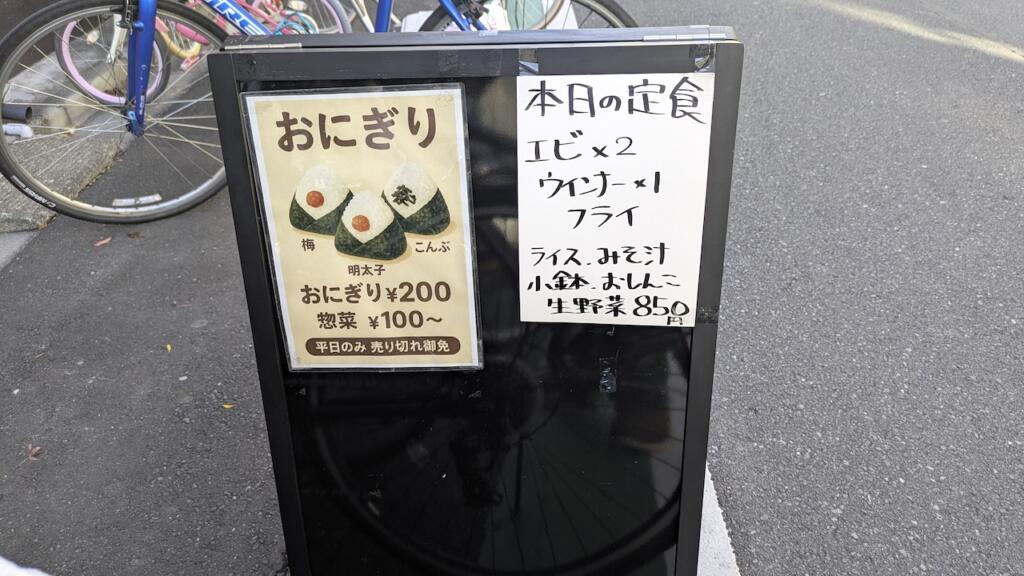 おにぎり
梅
こんぶ
明太子
おにぎり¥200
惣菜 ¥100〜
平日のみ 売り切れ御免
本日の定食
エビ×2
ウインナー×1
フライ
ライス、みそ汁
小鉢、おしんこ
生野菜 850円